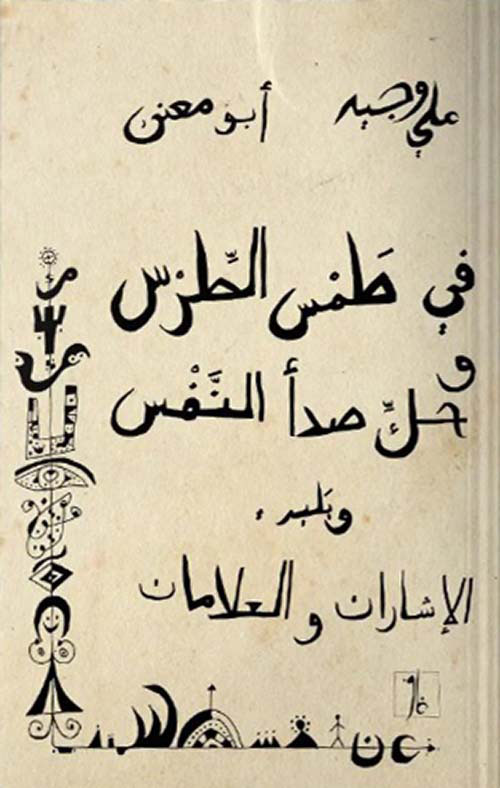 علي وجيه أبو معنى
في طَمْس الطِّرْس
و حكِّ صدأ النَّفْس
ويَليه:
الإشارات والعلامات